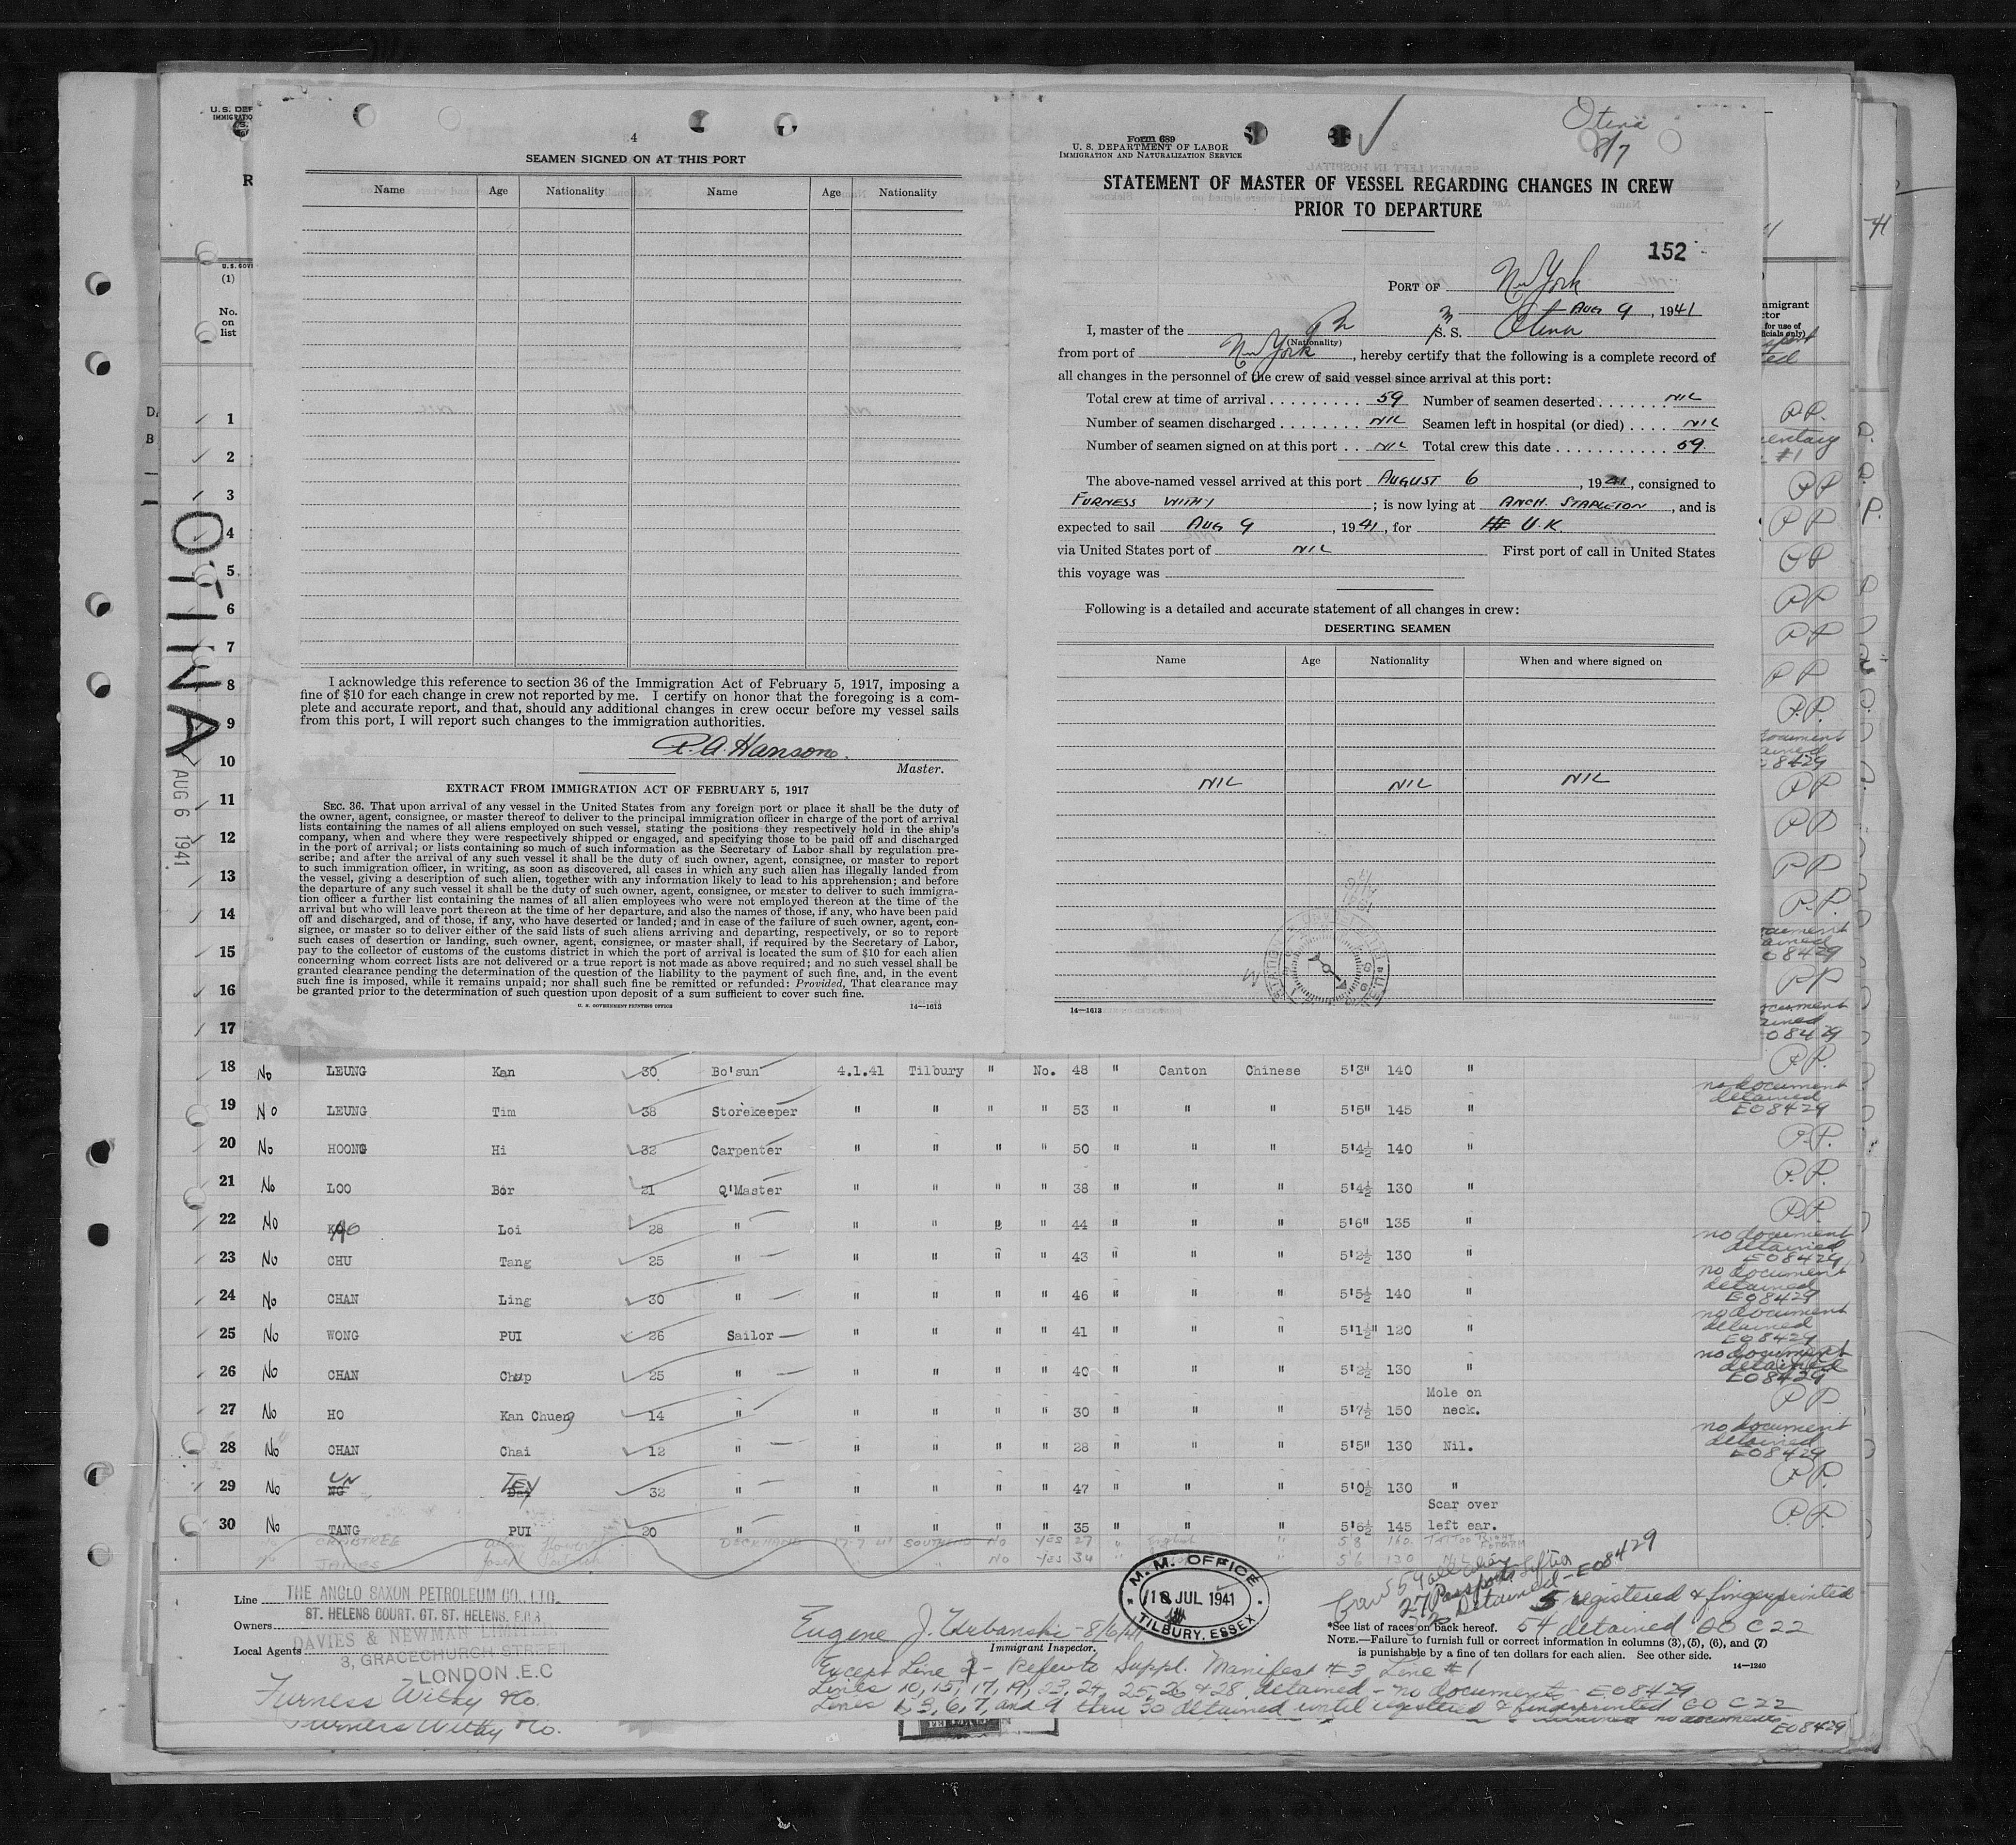 4
SEAMEN SIGNED ON AT THIS PORT
Name Age Nationality Name Age Nationality
I acknowledge this reference to section 36 of the Immigration Act of February 5, 1917, imposing a
fine of $10 for each change in crew not reported by me. I certify on honor that the foregoing is a com-
plete and accurate report, and that, should any additional changes in crew occur before my vessel sails
from this port, I will report such changes to the immigration authorities.
P. A. Hansone.
Master.
EXTRACT FROM IMMIGRATION ACT OF FEBRUARY 5, 1917
SEC. 36. That upon arrival of any vessel in the United States from any foreign port or place it shall be the duty of
the owner, agent, consignee, or master thereof to deliver to the principal immigration officer in charge of the port of arrival
lists containing the names of all aliens employed on such vessel, stating the positions they respectively hold in the ship's
company, when and where they were respectively shipped or engaged, and specifying those to be paid off and discharged
in the port of arrival; or lists containing so much of such information as the Secretary of Labor shall by regulation pre-
scribe; and after the arrival of any such vessel it shall be the duty of such owner, agent, consignee, or master to report
to such immigration officer, in writing, as soon as discovered, all cases in which any such alien has illegally landed from
the vessel, giving a description of such alien, together with any information likely to lead to his apprehension; and before
the departure of any such vessel it shall be the duty of such owner, agent, consignee, or master to deliver to such immigra-
tion officer a further list containing the names of all alien employees who were not employed thereon at the time of the
arrival but who will leave port thereon at the time of her departure, and also the names of those, if any, who have been paid
off and discharged, and of those, if any, who have deserted or landed; and in case of the failure of such owner, agent, con-
signee, or master so to deliver either of the said lists of such aliens arriving and departing, respectively, or so to report
such cases of desertion or landing, such owner, agent, consignee, or master shall, if required by the Secretary of Labor,
pay to the collector of customs of the customs district in which the port of arrival is located the sum of $10 for each alien
concerning whom correct lists are not delivered or a true report is not made as above required; and no such vessel shall be
granted clearance pending the determination of the question of the liability to the payment of such fine, and, in the event
such fine is imposed, while it remains unpaid; nor shall such fine be remitted or refunded: Provided, That clearance may
be granted prior to the determination of such question upon deposit of a sum sufficient to cover such fine.
U. S. GOVERNMENT PRINTING OFFICE 14—1613
Form 689
U. S. DEPARTMENT OF LABOR
IMMIGRATION AND NATURALIZATION SERVICE
Otina
8/7
STATEMENT OF MASTER OF VESSEL REGARDING CHANGES IN CREW
PRIOR TO DEPARTURE
152
PORT OF New York
AUG 9, 1941
I, master of the Br S. S. Otina
(Nationality)
from port of New York, hereby certify that the following is a complete record of
all changes in the personnel of the crew of said vessel since arrival at this port:
Total crew at time of arrival 59 Number of seamen deserted NIL
Number of seamen discharged NIL Seamen left in hospital (or died) NIL
Number of seamen signed on at this port NIL Total crew this date 59
The above-named vessel arrived at this port AUGUST 6, 1941, consigned to
FURNESS WITHY; is now lying at ANCH. STAPLETON, and is
expected to sail AUG 9, 1941, for U.K.
via United States port of NIL First port of call in United States
this voyage was
Following is a detailed and accurate statement of all changes in crew:
DESERTING SEAMEN
Name Age Nationality When and where signed on
NIL NIL NIL
14—1613
OTINA
AUG 6 1941
(1)
No. on list
1
2
3
4
5
6
7
8
9
10
11
12
13
14
15
16
17
18 No LEUNG Kan 30 Bo'sun 4.1.41 Tilbury " No. 48 " Canton Chinese 5'3" 140 " P.P.
19 No LEUNG Tim 38 Storekeeper " " " " 53 " " " 5'5" 145 " no document detained E08429
20 No HOONG Hi 32 Carpenter " " " " 50 " " " 5'4½ 140 " P.P.
21 No LOO Bor 21 Q'Master " " " " 38 " " " 5'4½ 130 " P.P.
22 No Loi 28 " " " " " 44 " " " 5'6" 135 " P.P.
23 No CHU Tang 25 " " " " " 43 " " " 5'2½ 130 " no document detained E08429
24 No CHAN Ling 30 " " " " " 46 " " " 5'5½ 140 " no document detained E08429
25 No WONG PUI 26 Sailor " " " " 41 " " " 5'1½" 120 " no document detained E08429
26 No CHAN Chup 25 " " " " " 40 " " " 5'2½ 130 " no document detained E08429
27 No HO Kan Chueng 14 " " " " " 30 " " " 5'7½ 150 Mole on neck. PP
28 No CHAN Chai 12 " " " " " 28 " " " 5'5" 130 Nil. no document detained E08429
29 No UN TEY 32 " " " " " 47 " " " 5'0½ 130 " P.P.
30 No TANG PUI 20 " " " " " 35 " " " 5'6½ 145 Scar over left ear. P.P.
CRABTREE DECKHAND 17-7-41 SOUTHEND No YES 27 English 5'8 160 TATTOO RIGHT FOREARM
JAMES Joseph No YES 34 5'6 130
Line THE ANGLO SAXON PETROLEUM CO., LTD.
ST. HELENS COURT, GT. ST. HELENS, E.C.3.
Owners
DAVIES & NEWMAN LIMITED
Local Agents 3, GRACECHURCH STREET
LONDON E.C
Furness Withy & Co.
Furness Withy & Co.
M. M. OFFICE
18 JUL 1941
TILBURY, ESSEX
Eugene J. Urbanski - 8/6/41
Immigrant Inspector.
Crew 59 all aliens
27 Passports lifted
Detained - E08429
5 registered & fingerprinted
54 detained GO C22
*See list of races on back hereof.
NOTE.—Failure to furnish full or correct information in columns (3), (5), (6), and (7)
is punishable by a fine of ten dollars for each alien. See other side.
14—1240
Except Line 2 - Refer to Suppl. Manifest #3 Line #1
Lines 10, 15, 17, 19, 23, 24, 25, 26 & 28 detained - no documents - E08429
Lines 1, 3, 6, 7, and 9 thru 30 detained until registered & fingerprinted GO C22
E08429